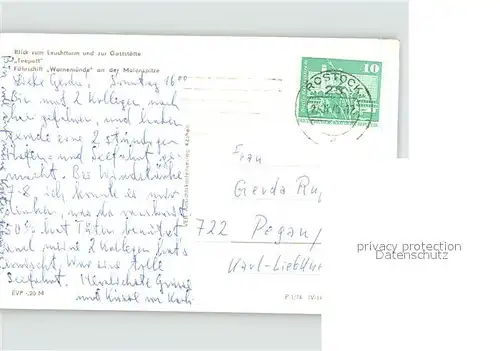 Blick zum Leuchtturm und zur Gaststätte
„Teepott"
Fährschiff „Warnemünde" an der Molenspitze
10
ROSTOCK
Liebe Gerda! Sonntag 16⁰⁰
Bin mit 2 Kollegen nach
hier gefahren, und haben
gerade eine 2 stündigen
Hafen- und Seefahrt ge-
macht. Bei Windstärke
7-8 ich konnte es mir
denken, was da
50% hat Tüten benötigt
und meine 2 Kollegen hat's
erwischt. War eine tolle
Seefahrt. Herzlichste Grüsse
und Küsse
Frau
Gerda
722 Pegau/
Karl-Liebkne
privacy protection
Datenschutz
EVP -,20 M